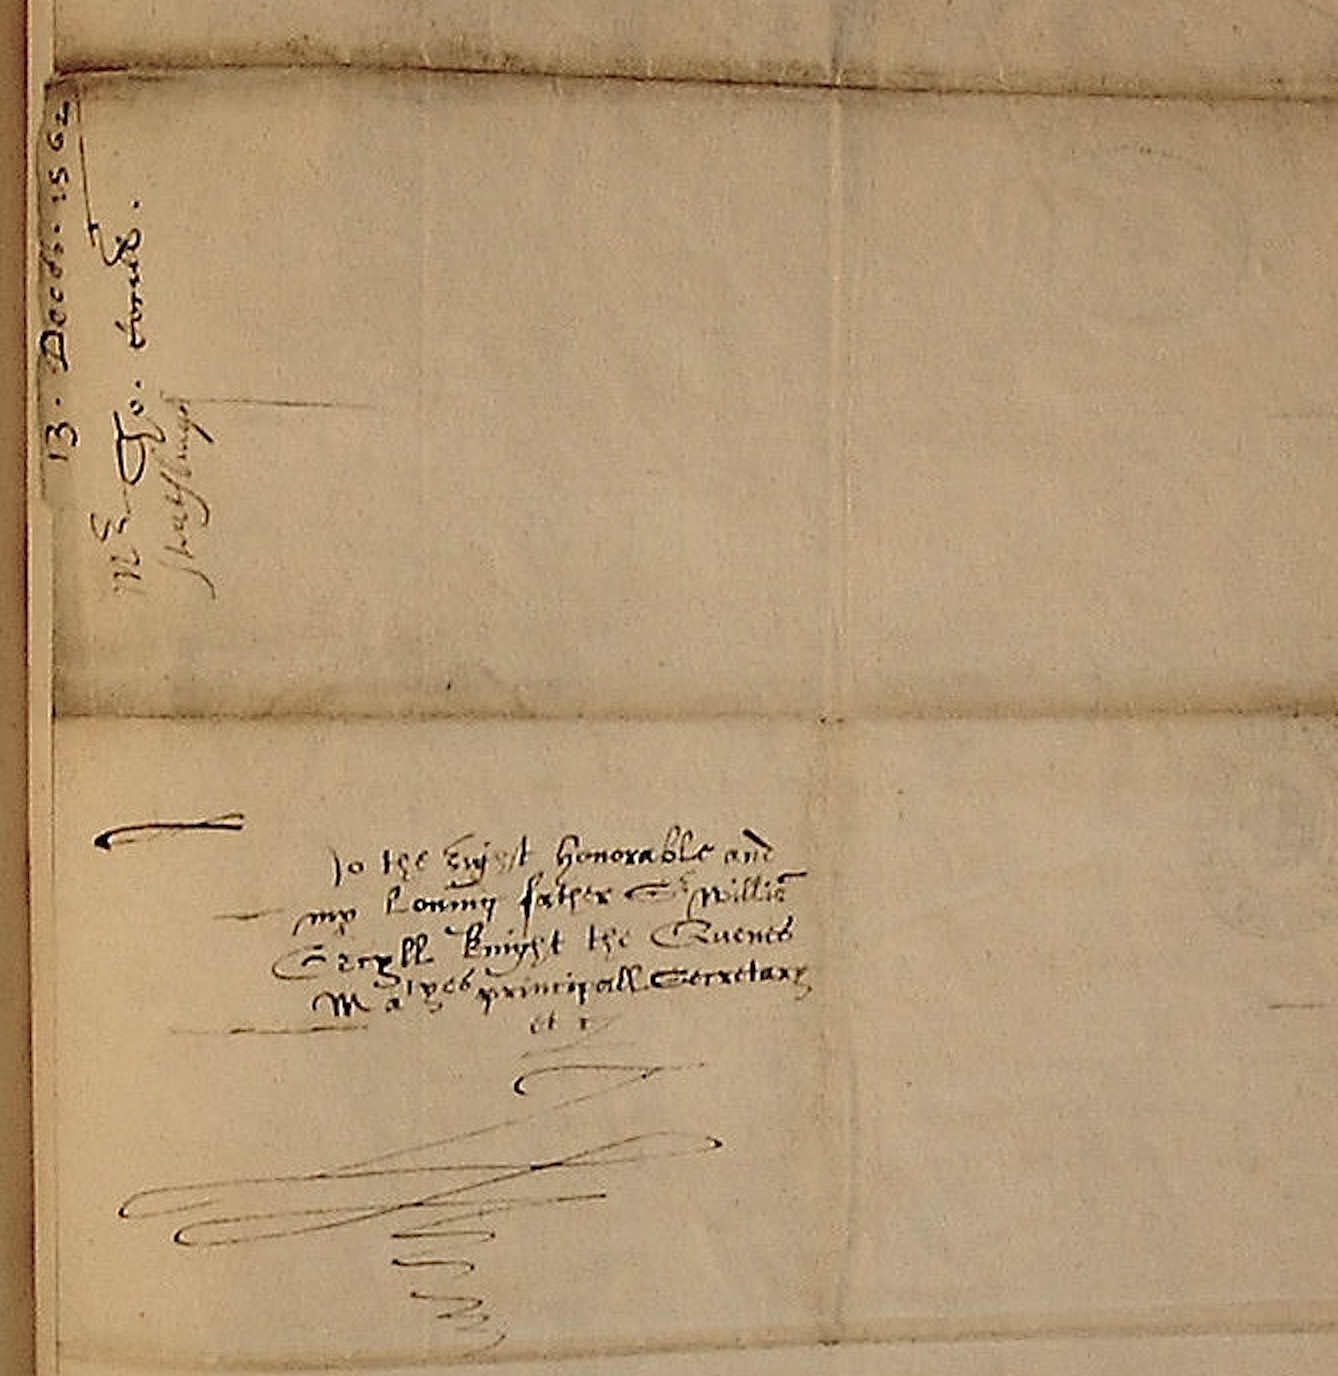 13. Decēb. 1562
Mr Tho.
To the Right Honorable and
my Loving father Sr Williā
Cecyll Knight the Quenes
Maiyes principall Secretary
et c